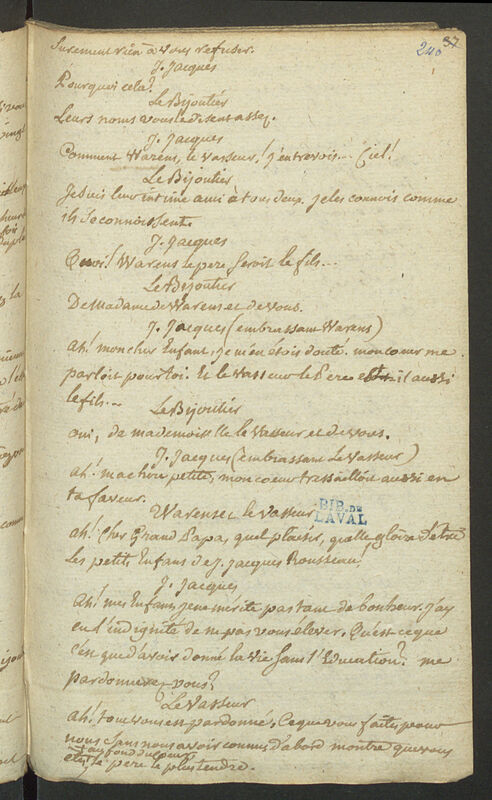 surement rien à vous refuser.
37
240
J. Jacques
Pourquoi cela?
Le Bijoutier
Leurs noms vous le disent assez.
J. Jacques
Comment Warens, le vasseur! j'entrevois... Ciel!
Le Bijoutier
Je suis leur intime ami à tous deux. je les connois comme
ils se connoissent.
J. Jacques
Quoi! Warens le pere seroit le fils...
Le Bijoutier
De Madame de Warens et de vous.
J. Jacques (embrassant Warens)
Ah! mon cher Enfant, je m'en étois douté. mon coeur me
parloit pour toi. Et le Vasseur le Pere est-il aussi
le fils...
Le Bijoutier
oui, de mademoiselle le Vasseur et de vous.
J. Jacques (embrassant Le Vasseur)
ah! ma chere petite, mon coeur tressailloit aussi en
ta faveur.
Warens et le vasseur
BIB. DE
LAVAL
ah! Cher Grand Papa, quel plaisir, quelle gloire d'être
les petits Enfans de J. Jacques Rousseau!
J. Jacques
Ah! mes Enfans, je ne mérite pas tant de bonheur. j'ay
eu l'indignité de ne pas vous élever. Qu'est ce que
c'en que d'avoir donné la vie sans l'Education? me
pardonnez-vous?
Le Vasseur
Ah! tout vous est pardonné. Ce que vous faites pour
nous sans nous avoir connus d'abord montre que vous
au fond du coeur
etes le pere le plus tendre.